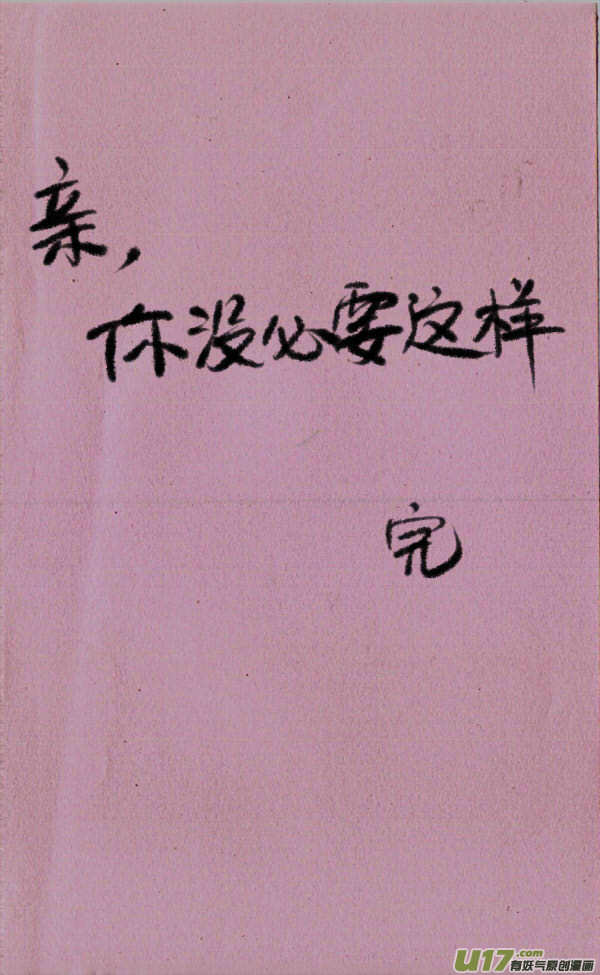 亲，
你没必要这样
完
U17.com
有妖气原创漫画